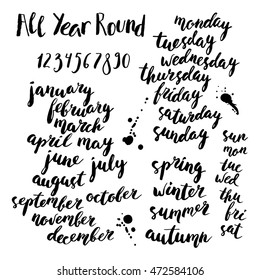 All Year Round
1234567890
january
february
march
april may
june july
august
september october
november
december
monday
tuesday
wednesday
thursday
friday
saturday
sunday
spring
winter
summer
autumn
sun
mon
tue
wed
thu
fri
sat
shutterstock.com · 472584106